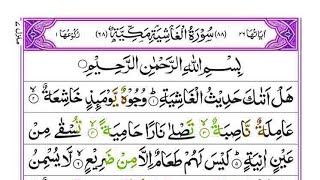 اٰیَاتُهَا ٢٦ (٨٨) سُوْرَةُ الْغَاشِيَةِ مَكِّيَّةٌ (٦٨) رُكُوْعُهَا ١
بِسْمِ اللّٰهِ الرَّحْمٰنِ الرَّحِيْمِ
هَلْ اَتٰىكَ حَدِيْثُ الْغَاشِيَةِ ۝١ وُجُوْهٌ يَّوْمَىِٕذٍ خَاشِعَةٌ ۝٢
عَامِلَةٌ نَّاصِبَةٌ ۝٣ تَصْلٰى نَارًا حَامِيَةً ۝٤ تُسْقٰى مِنْ
عَيْنٍ اٰنِيَةٍ ۝٥ لَيْسَ لَهُمْ طَعَامٌ اِلَّا مِنْ ضَرِيْعٍ ۝٦ لَّا يُسْمِنُ